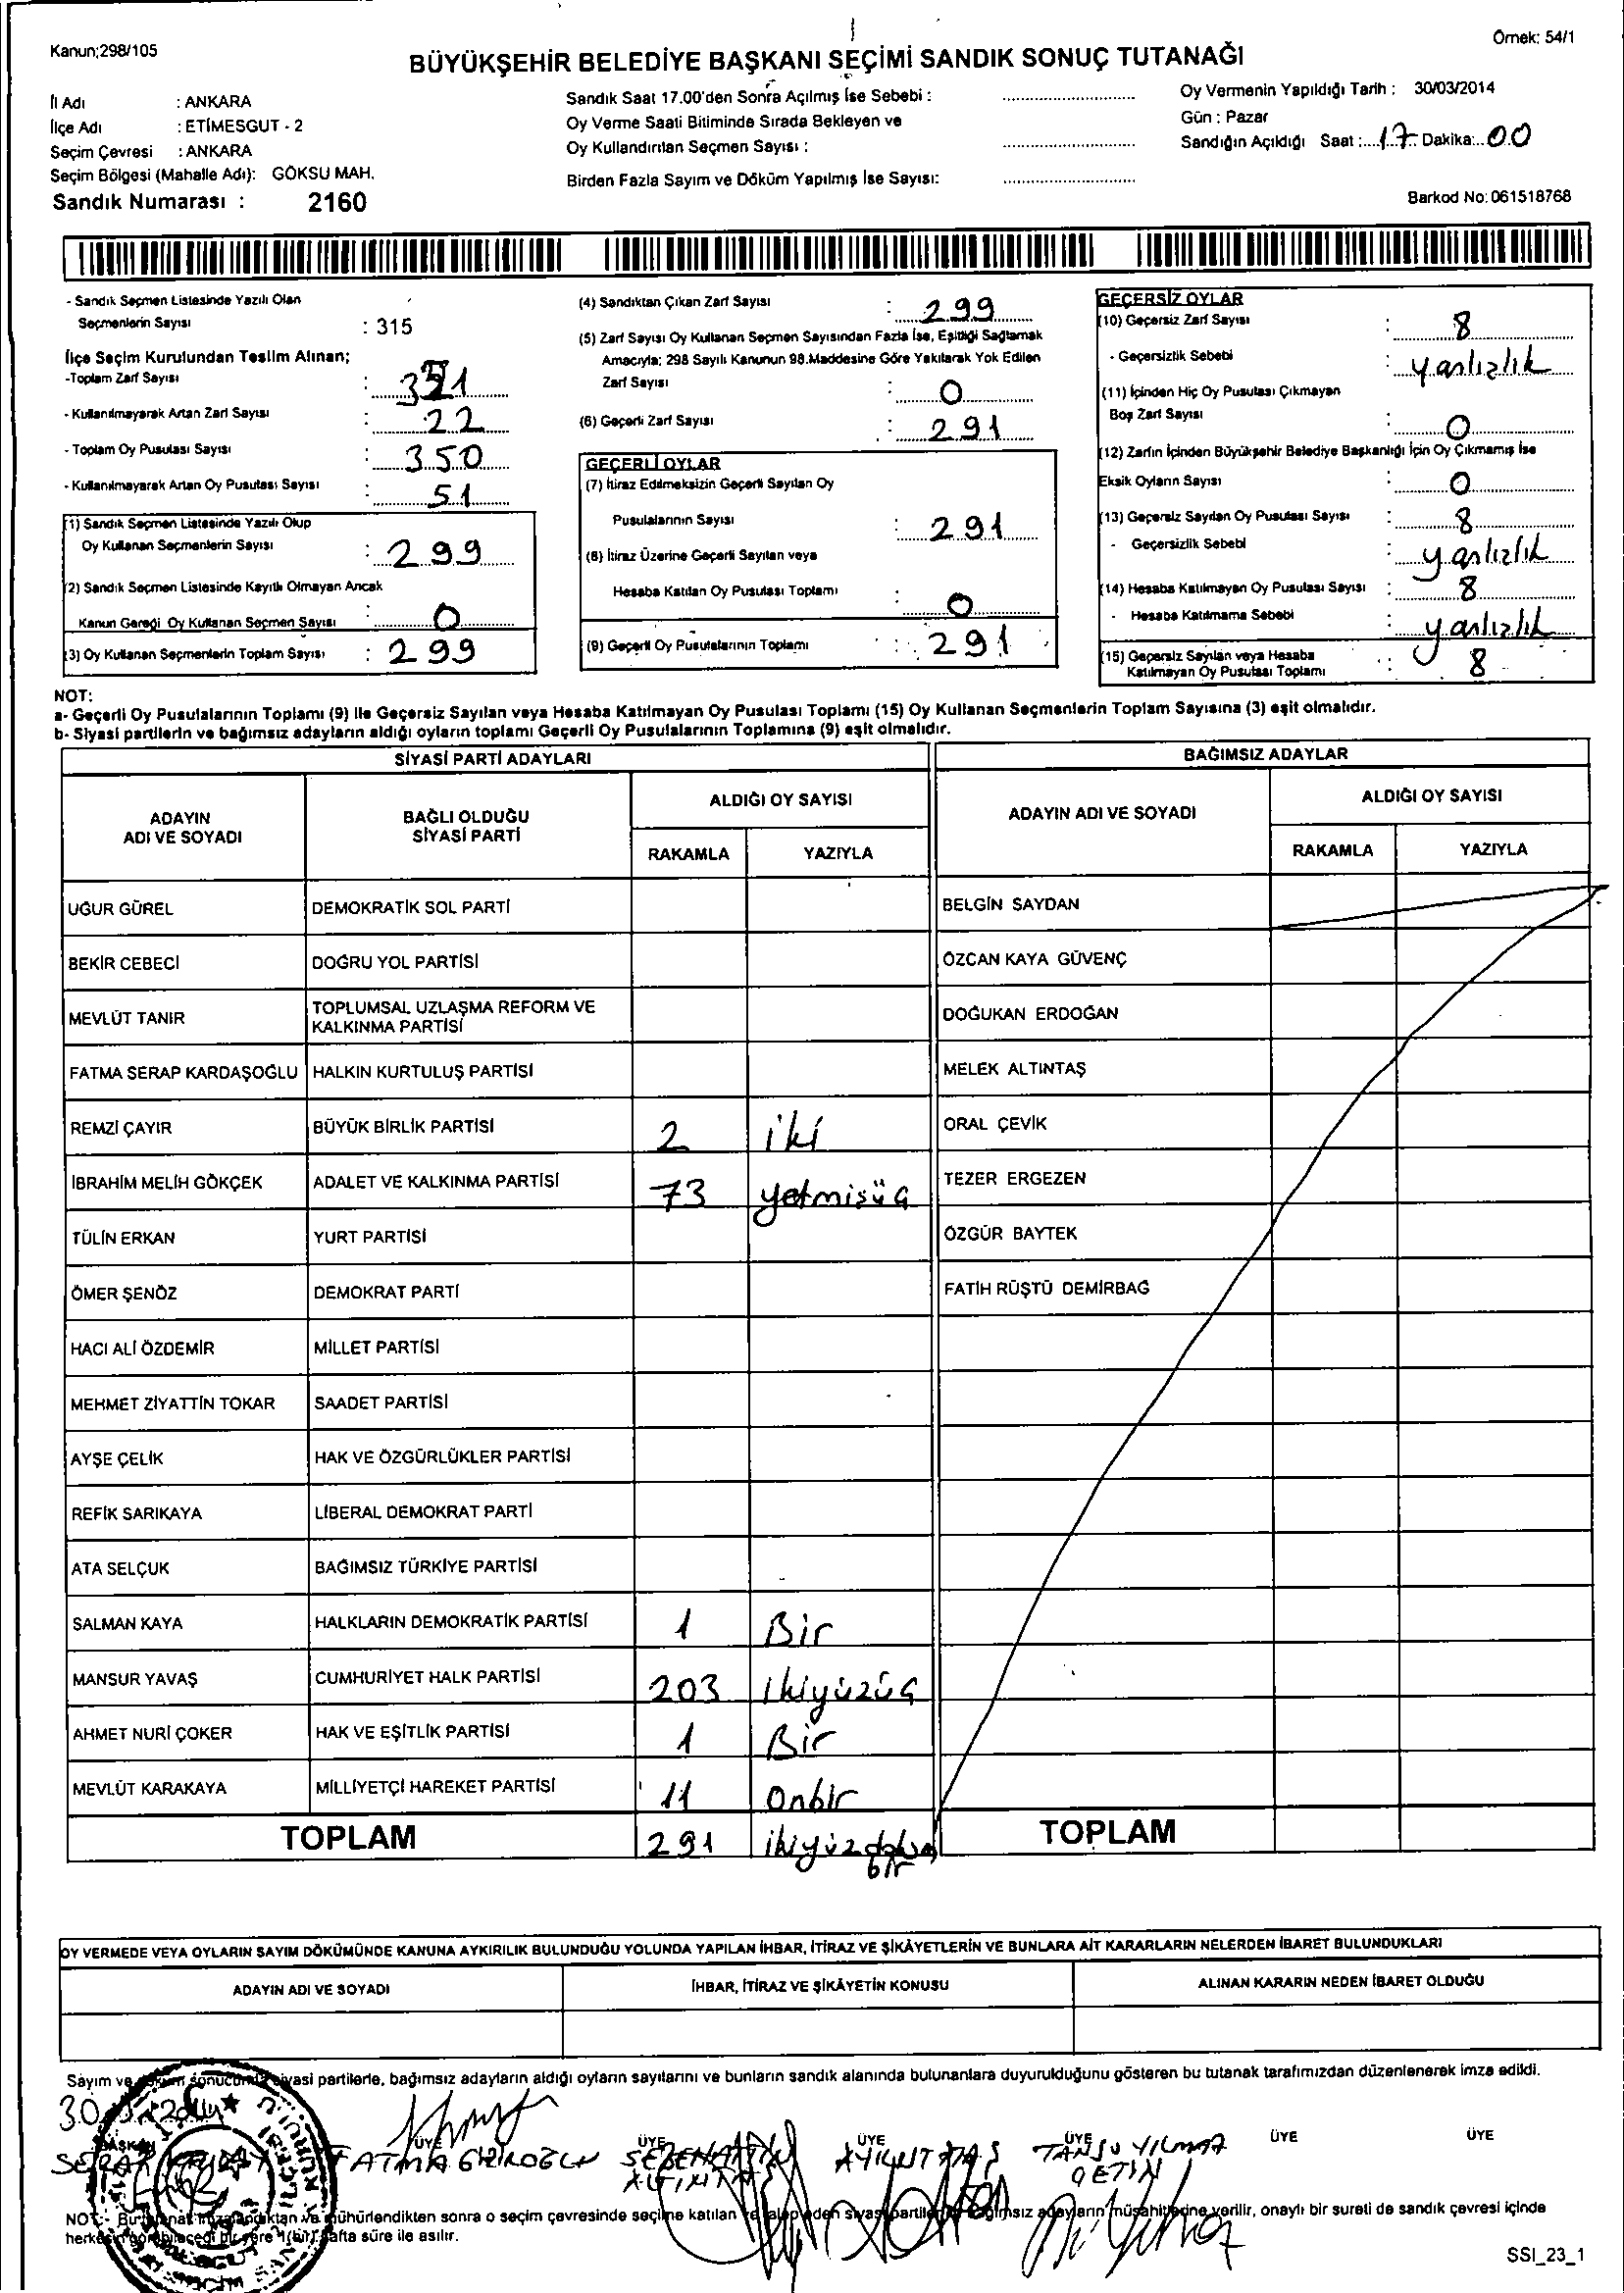 Kanun;298/105
Örnek: 54/1
BÜYÜKŞEHİR BELEDİYE BAŞKANI SEÇİMİ SANDIK SONUÇ TUTANAĞI
İl Adı : ANKARA
İlçe Adı : ETİMESGUT - 2
Seçim Çevresi : ANKARA
Seçim Bölgesi (Mahalle Adı): GÖKSU MAH.
Sandık Numarası : 2160
Sandık Saat 17.00'den Sonra Açılmış İse Sebebi :
Oy Verme Saati Bitiminde Sırada Bekleyen ve
Oy Kullandırılan Seçmen Sayısı :
Birden Fazla Sayım ve Döküm Yapılmış İse Sayısı:
Oy Vermenin Yapıldığı Tarih : 30/03/2014
Gün : Pazar
Sandığın Açıldığı Saat : 17 Dakika: 00
Barkod No: 061518768
- Sandık Seçmen Listesinde Yazılı Olan
Seçmenlerin Sayısı : 315
İlçe Seçim Kurulundan Teslim Alınan;
-Toplam Zarf Sayısı : 321
- Kullanılmayarak Artan Zarf Sayısı : 22
- Toplam Oy Pusulası Sayısı : 350
- Kullanılmayarak Artan Oy Pusulası Sayısı : 51
(1) Sandık Seçmen Listesinde Yazılı Olup
Oy Kullanan Seçmenlerin Sayısı : 299
(2) Sandık Seçmen Listesinde Kayıtlı Olmayan Ancak
Kanun Gereği Oy Kullanan Seçmen Sayısı : 0
(3) Oy Kullanan Seçmenlerin Toplam Sayısı : 299
(4) Sandıktan Çıkan Zarf Sayısı : 299
(5) Zarf Sayısı Oy Kullanan Seçmen Sayısından Fazla İse, Eşitliği Sağlamak
Amacıyla; 298 Sayılı Kanunun 98.Maddesine Göre Yakılarak Yok Edilen
Zarf Sayısı : 0
(6) Geçerli Zarf Sayısı : 291
GEÇERLİ OYLAR
(7) İtiraz Edilmeksizin Geçerli Sayılan Oy
Pusulalarının Sayısı : 291
(8) İtiraz Üzerine Geçerli Sayılan veya
Hesaba Katılan Oy Pusulası Toplamı : 0
(9) Geçerli Oy Pusulalarının Toplamı : 291
GEÇERSİZ OYLAR
(10) Geçersiz Zarf Sayısı : 8
- Geçersizlik Sebebi : yanlızlık
(11) İçinden Hiç Oy Pusulası Çıkmayan
Boş Zarf Sayısı : 0
(12) Zarfın İçinden Büyükşehir Belediye Başkanlığı İçin Oy Çıkmamış İse
Eksik Oyların Sayısı : 0
(13) Geçersiz Sayılan Oy Pusulası Sayısı : 8
- Geçersizlik Sebebi : yanlızlık
(14) Hesaba Katılmayan Oy Pusulası Sayısı : 8
- Hesaba Katılmama Sebebi : yanlızlık
(15) Geçersiz Sayılan veya Hesaba
Katılmayan Oy Pusulası Toplamı : 8
NOT:
a- Geçerli Oy Pusulalarının Toplamı (9) ile Geçersiz Sayılan veya Hesaba Katılmayan Oy Pusulası Toplamı (15) Oy Kullanan Seçmenlerin Toplam Sayısına (3) eşit olmalıdır.
b- Siyasi partilerin ve bağımsız adayların aldığı oyların toplamı Geçerli Oy Pusulalarının Toplamına (9) eşit olmalıdır.
SİYASİ PARTİ ADAYLARI
BAĞIMSIZ ADAYLAR
ADAYIN
ADI VE SOYADI
BAĞLI OLDUĞU
SİYASİ PARTİ
ALDIĞI OY SAYISI
RAKAMLA YAZIYLA
ADAYIN ADI VE SOYADI
ALDIĞI OY SAYISI
RAKAMLA YAZIYLA
UĞUR GÜREL DEMOKRATİK SOL PARTİ BELGİN SAYDAN
BEKİR CEBECİ DOĞRU YOL PARTİSİ ÖZCAN KAYA GÜVENÇ
MEVLÜT TANIR TOPLUMSAL UZLAŞMA REFORM VE KALKINMA PARTİSİ DOĞUKAN ERDOĞAN
FATMA SERAP KARDAŞOĞLU HALKIN KURTULUŞ PARTİSİ MELEK ALTINTAŞ
REMZİ ÇAYIR BÜYÜK BİRLİK PARTİSİ 2 iki ORAL ÇEVİK
İBRAHİM MELİH GÖKÇEK ADALET VE KALKINMA PARTİSİ 73 yetmişüç TEZER ERGEZEN
TÜLİN ERKAN YURT PARTİSİ ÖZGÜR BAYTEK
ÖMER ŞENÖZ DEMOKRAT PARTİ FATİH RÜŞTÜ DEMİRBAĞ
HACI ALİ ÖZDEMİR MİLLET PARTİSİ
MEHMET ZİYATTİN TOKAR SAADET PARTİSİ
AYŞE ÇELİK HAK VE ÖZGÜRLÜKLER PARTİSİ
REFİK SARIKAYA LİBERAL DEMOKRAT PARTİ
ATA SELÇUK BAĞIMSIZ TÜRKİYE PARTİSİ
SALMAN KAYA HALKLARIN DEMOKRATİK PARTİSİ 1 Bir
MANSUR YAVAŞ CUMHURİYET HALK PARTİSİ 203 ikiyüzüç
AHMET NURİ ÇOKER HAK VE EŞİTLİK PARTİSİ 1 Bir
MEVLÜT KARAKAYA MİLLİYETÇİ HAREKET PARTİSİ 11 Onbir
TOPLAM 291 ikiyüzdoksan TOPLAM
bir
OY VERMEDE VEYA OYLARIN SAYIM DÖKÜMÜNDE KANUNA AYKIRILIK BULUNDUĞU YOLUNDA YAPILAN İHBAR, İTİRAZ VE ŞİKÂYETLERİN VE BUNLARA AİT KARARLARIN NELERDEN İBARET BULUNDUKLARI
ADAYIN ADI VE SOYADI İHBAR, İTİRAZ VE ŞİKÂYETİN KONUSU ALINAN KARARIN NEDEN İBARET OLDUĞU
Sayım ve döküm sonucunda siyasi partilerle, bağımsız adayların aldığı oyların sayılarını ve bunların sandık alanında bulunanlara duyurulduğunu gösteren bu tutanak tarafımızdan düzenlenerek imza edildi.
BAŞKAN ÜYE ÜYE ÜYE ÜYE ÜYE ÜYE
FATMA TANSU YILMAZ
ÇETİN
NOT:- Bu tutanak imzalandıktan ve mühürlendikten sonra o seçim çevresinde seçime katılan ve talep eden siyasi partilerle bağımsız adayların müşahitlerine verilir, onaylı bir sureti de sandık çevresi içinde
herkesin görebileceği bir yere 1(bir) hafta süre ile asılır.
SSI_23_1